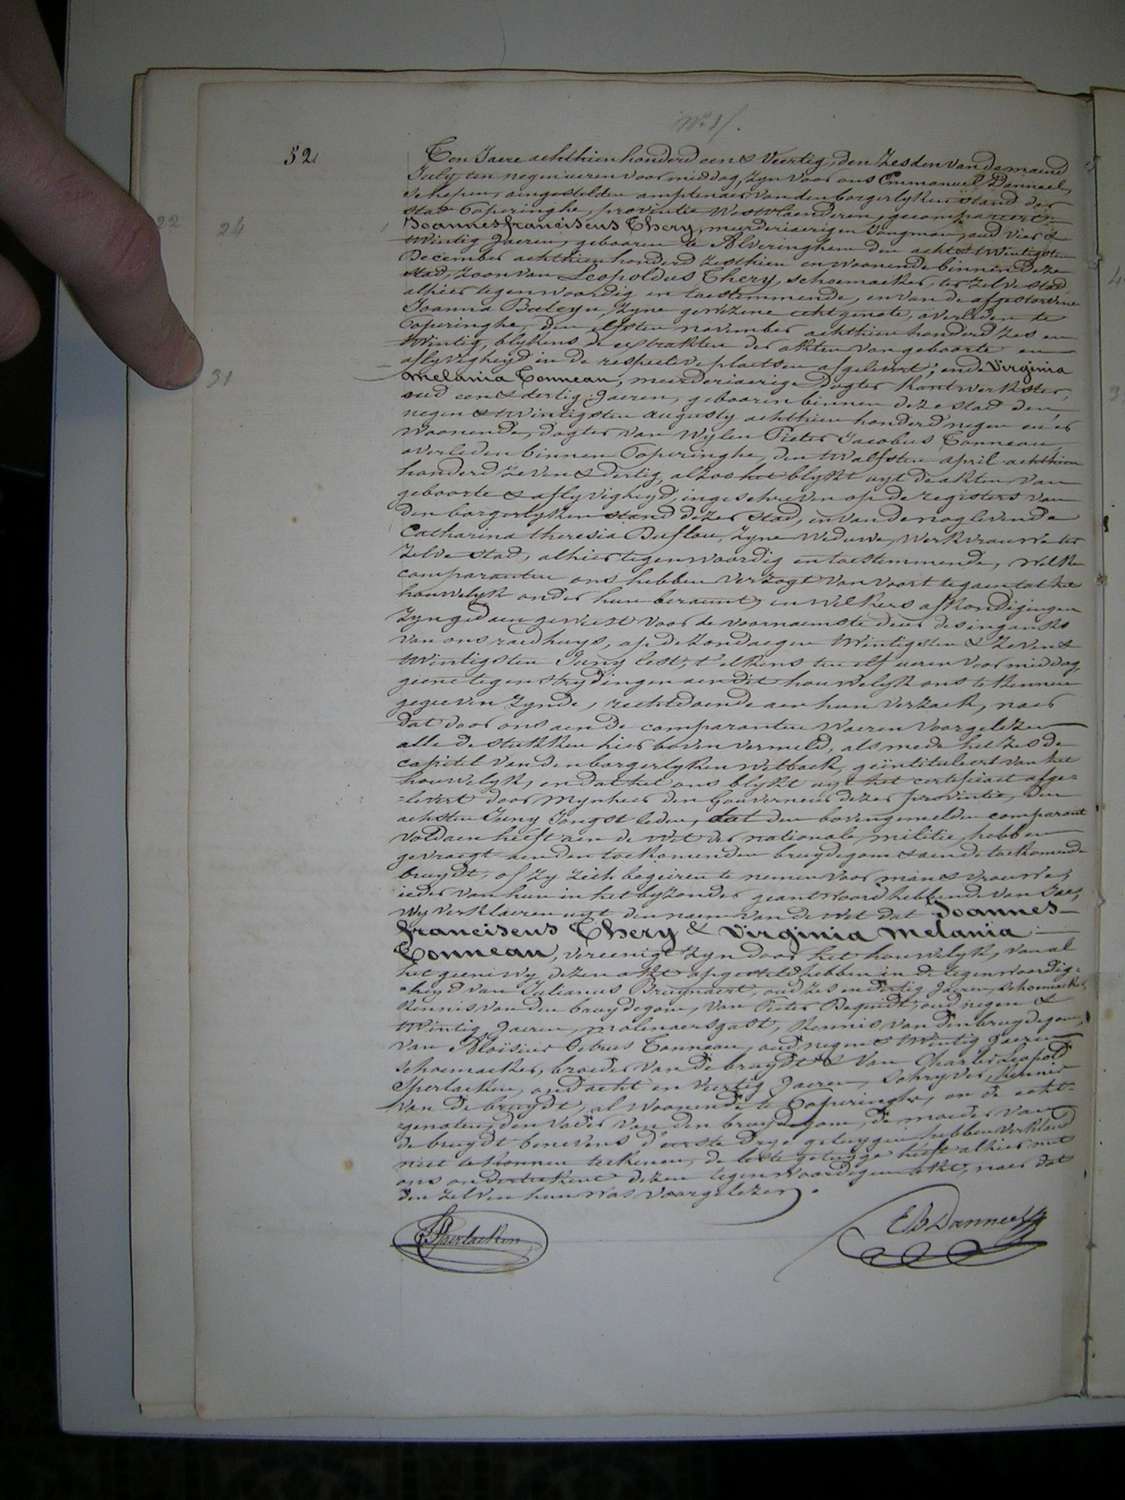 N° 31.
52.
Ten Jaere achthien honderd een & Veertig, den Zesden van de maend
July, ten negen ueren voor middag, zyn voor ons Emmanuel Danneel,
schepen, aengestelden amptenaer van den borgerlyken stand der
stad Poperinghe, provintie Westvlaenderen, gecompareert:
22 24
Joannes franciscus Thery, meerderiaerigen Jongman, oud vier &
twintig Jaeren, gebooren te Alveringhem den acht & twintigsten
December achthien honderd zesthien en woonende binnen deze
stad, zoon van Leopoldus Thery, schoemaeker, ter zelve stad,
alhier tegenwoordig en toestemmende, en van de afgestorvene
Joanna Baleyn, zyne gewezene echtgenote, overleden te
Poperinghe, den elfsten november achthien honderd zes en
twintig, blykens de extrakten der akten van geboorte en
aflyvigheyd in de respective plaetsen afgelevert; ende Virginia
31
Melania Tonneau, meerderiaerige Dogter kantwerkster,
oud een & dertig Jaeren, gebooren binnen deze stad den
negen & twintigsten augusty achthien honderd negen en er
woonende, dogter van Wylen Pieter Jacobus Tonneau,
overleden binnen Poperinghe, den twalfsten april achthien
honderd zeven & dertig, alzoo het blykt uyt de akten van
geboorte & aflyvigheyd, ingeschreven op de registers van
den borgerlyken stand dezer stad, en van de nog levende
Catharina Theresia Duflou, zyne Weduwe, werkvrouwe ter
zelve stad, alhier tegenwoordig en toestemmende, welke
comparanten ons hebben verzogt van voort te gaen tot het
houwelyk onder hun beraemt, en welkers afkondigingen
zyn gedaen geweest voor de voornaemste deur des ingangks
van ons raedhuys, op de zondaegen twintigsten & zeven &
twintigsten Juny lest, t'elkens ten elf ueren voor middag,
geene tegenstrydingen aen dit houwelyk ons te kennen
gegeven zynde, rechtdoende aen hun verzoek, naer
dat door ons aen de comparanten waeren voorgelezen
alle de stukken hier boven vermeld, als mede het zesde
capitel van den borgerlyken wetboek, geïntituleert van het
houwelyk, en dat het ons blykt uyt het certificaet afge=
=levert door Mynheer den Gouverneur dezer provintie, den
achsten Juny Jongst leden, dat den bovengemelden comparant
voldaen heeft aen de wet der nationale militie, hebben
gevraegt aen den toekomenden bruydegom & aen de toekomende
bruydt, of zy zich begeiren te nemen voor man & vrouwe;
ieder van hun in het byzonder geantwoord hebbende van Jae,
wy verklaeren uyt den naem van de wet dat Joannes
franciscus Thery & Virginia Melania
Tonneau, vereenigt zyn door het houwelyk, van al
het geene wy dezen akt opgesteld hebben in de tegenwoordig=
=heyd van Julianus Bruynaert, oud zes en dertig Jaeren, schoemaeker,
kennis van den bruydegom, van Pieter oud negen &
twintig Jaeren, molenaersgast, kennis van den bruydegom,
van Aloïsius Petrus Tonneau, oud negen & twintig Jaeren,
schoemaeker, broeder van de bruydt & van Charles Leopold
Sperlaeken, oud acht en veertig Jaeren, schryver, kennis
van de bruydt, al woonende te Poperinghe, en de echt=
genoten, den vader van den bruydegom, de moeder van
de bruydt benevens d'eerste drye getuygen hebben verklaerd
niet te konnen teekenen, de leste getuyge heeft alhier met
ons onderteekent dezen tegenwoordigen akt, naer dat
den zelven hun was voorgelezen.
Sperlaeken
E B Danneel